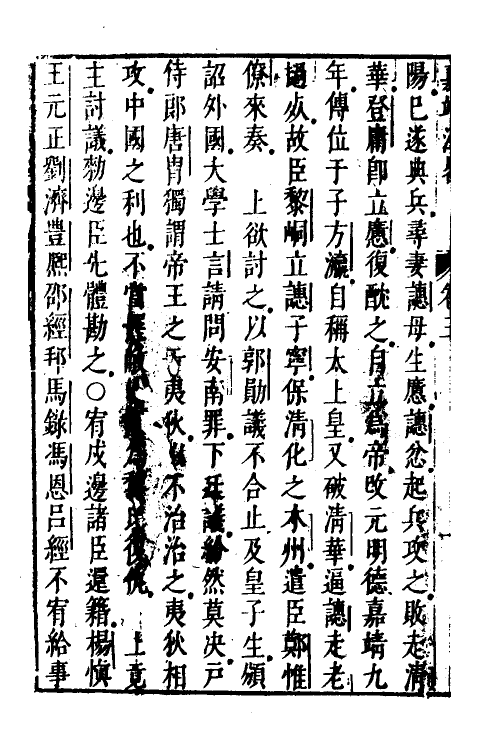 陽已遂典兵尋妻譓母生應譓忿起兵攻之敗走清
華登庸卽立應復酖之自立為帝改元明德嘉靖九
年傳位于子方瀛自稱太上皇又破清華逼譓走老
撾死故臣黎峒立譓子寧保清化之木州遣臣鄭惟
僚來奏　上欲討之以郭勛議不合止及皇子生頒
詔外國大學士言請問安南罪下廷議紛然莫決戸
侍郎唐胄獨謂帝王之於夷狄以不治治之夷狄相
攻中國之利也不宜　上竟
主討議勅邊臣先體勘之〇宥戍邊諸臣還籍楊慎
王元正劉濟豊熈邵經邦馬錄馮恩呂經不宥給事